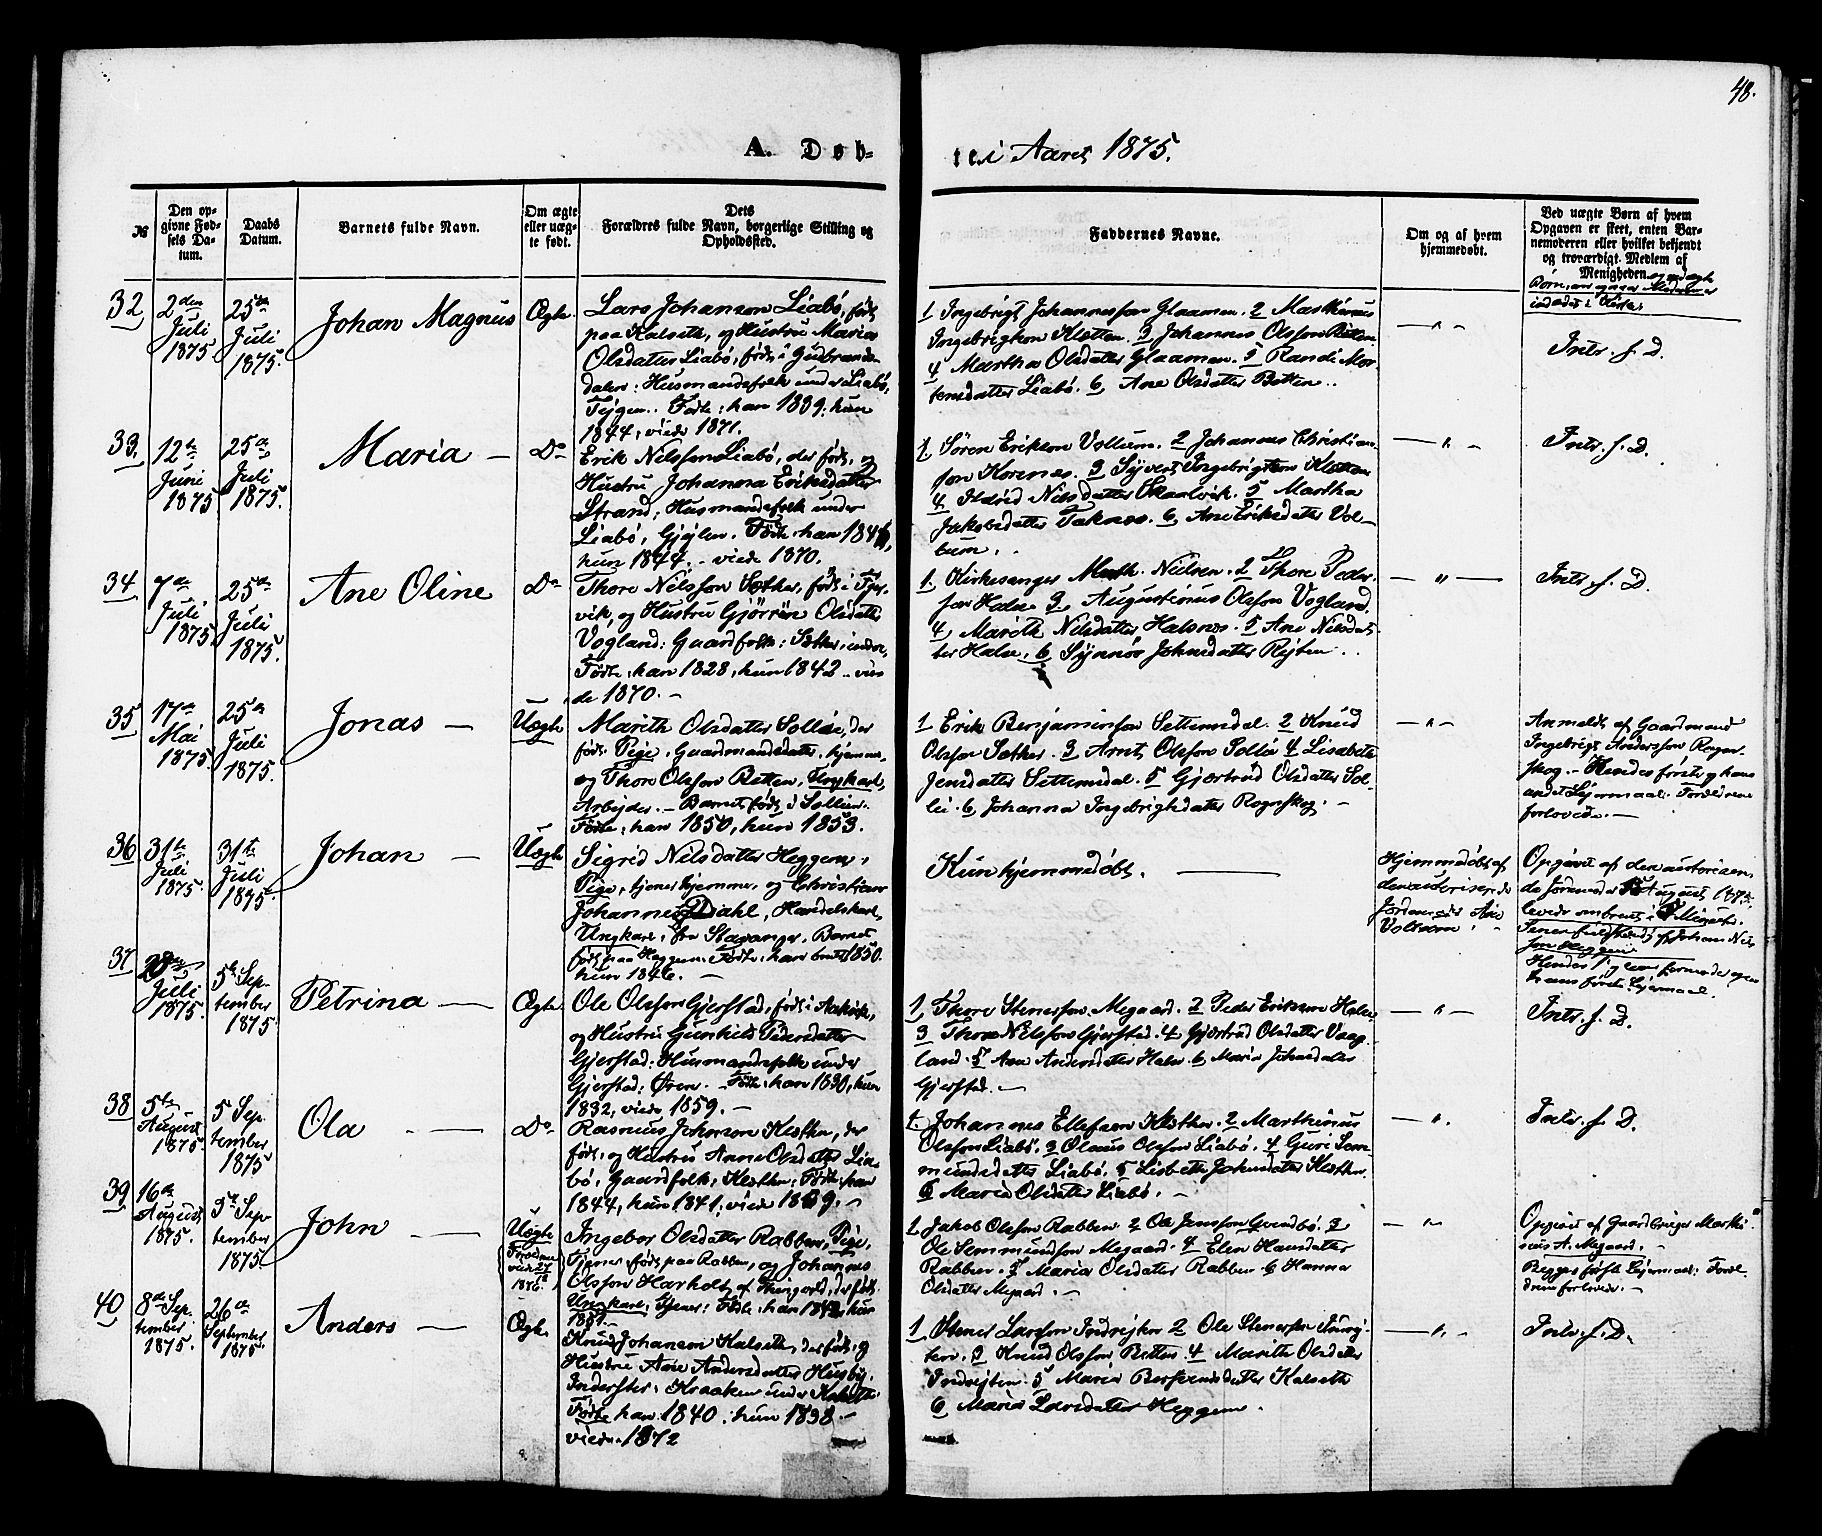 48.
A. Døb-
te i Aaret 1875.
№
Den op-
givne Fød-
sels Da-
tum.
Daabs
Datum.
Barnets fulde Navn.
Om ægte
eller uæg-
te født.
Dets
Forældres fulde Navn, borgerlige Stilling og
Opholdssted.
Faddernes Navne.
Om og af hvem
hjemmedøbt.
Ved uægte Børn af hvem
Opgaven er skeet, enten Bar-
nemoderen eller hvilket bekjendt
og troværdigt Medlem af
Menigheden
32
2den
Juli
1875
25de
Juli
1875.
Johan Magnus
Ægte
Lars Johanson Liabö, född
paa Kalseth, og Hustru Maria
Olsdatter Liabö, född i Gudbrands-
dalen: Husmandsfolk under Liabö,
Födte: han 1839, hun
1844, viede 1871.
1 Ingebrigt Johannesson Glaamen. 2 Marthinus
Ingebrigtson Kletten. 3 Johannes Olsson Botten
4 Martha Olsdatter Glaamen. 5 Randi Mor-
tensdatter Liabö. 6, Ane Olsdatter Botten.
— " —
Intr. f. D.
33.
12te
Juni
1875
25de
Juli
1875.
Maria —
Do
Erik Nilsson Liabö, der född, og
Hustru Johanna Eriksdatter
Strand, Husmandsfolk under
Liabö, Födte: han 1844,
hun 1844. — viede 1870.
1. Sören Erikson Vollum. 2 Johannes Christian-
son Korsnes. 3 Syvert Ingebrigtson Kletten
4 Ildrid Nilsdatter Skaalvik. 5 Martha
Jakobsdatter Taknes. 6 Ane Eriksdatter Vol-
lum.
— " —
Intr. f. D.
34
7de
Juli
1875.
25de
Juli
1875.
Ane Oline
Do
Thore Nilsson Sæther, född i
vik, og Hustru Gjörrön Olsdatter
Vogland: Gaardfolk: Sæther, indre,
Födte: han 1828, hun 1842 — vie-
de 1870. —
1. Kirkesanger Math. Nielsen. 2 Thore Peder-
son Halse 3 Augustinus Olsson Vogland.
4 Marith Nilsdatter Halsnes. 5 Ane Nilsdat-
ter Halse, 6 Synnöv Johnsdatter Rejten.
— " —
Intr. f. D.
35
17de
Mai
1875.
25de
Juli
1875.
Jonas —
Uægte
Marith Olsdatter Sollie, der
född. Pige, Gaardmandsdatter, hjemme,
og Thore Olsson Botten, Ungkarl,
Arbejder. — Barnet född i Sollien.
Födte: han 1850, hun 1853.
1 Erik Benjaminson Settemsdal. 2 Knud
Olsson Sæther. 3 Arnt Olsson Sollie 4 Lisabeth
Jensdatter Settemsdal. 5 Gjertrud Olsdatter Sol-
lie. 6 Johanna Ingebrigtsdatter Rognskog. —
— " —
Anmeldt af Gaardmand
Ingebrigt Andersson Rogn-
skog. — Hendes förste og hans
andet Lejermaal. Forældrene
forlovede. —
36
31te
Juli
1875.
31te
Juli
1875.
Johan —
Uægte
Sigrid Nilsdatter Heggem,
Pige, tjener hjemme, og Christian
Johannes Dahl, Handelskarl,
Ungkarl, fra Stavanger. Barnet
född paa Heggem. Födte: han omtrent 1850.
hun 1846. —
Kun hjemmedöbt. —
Hjemmedöbt af
den autoriserede
Jordemoder Ane
Voldsom
Opgivet af den autoriserede
Jordemoder August 1875,
levede omtrent i Minut.
Johan Nils-
son Heggem
hans förste Lejermaal.
37
Juli
1875.
5te Sep-
tember
1875
Petrina —
Ægte
Ole Olsson Gjerstad, född i Aakvik,
og Hustru Gunhild Pedersdatter
Gjerstad: Husmandsfolk under
Gjerstad: Ören. — Födte: han 1830, hun
1832, viede 1859. —
1, Thore Stenersson Megaard. 2 Peder Erikson Halse
3 Thore Nilsson Gjerstad. 4 Gjertrud Olsdatter Vaag-
land. 5 Ane Andersdatter Halse. 6 Maria Johnsdatter
Gjerstad. —
— " —
Intr. f. D.
38
5te
August
1875.
5 Sep-
tember
1875
Ola —
Do
Rasmus Johnson Kleven, der
född, og Hustru Anne Olsdatter Lia-
bö, Gaardfolk, Födte: han
1844, hun 1841, viede 1869. —
1. Johannes Ellefsen 2 Marthinus
Olsson Liabö. 3 Olaus Olsson Liabö. 4 Guri Sem-
mundsdatter Liabö. 5 Lisbeth Johnsdatter
6 Maria Olsdatter Liabö. —
— ".
Intr. f. D.
39
16de
August
1875.
5te Sep-
tember
1875.
John —
Uægte
Forældrene
viede 27
1876.
Ingebor Olsdatter Rabben, Pige,
Tjener, född paa Rabben, og Johannes
Olsson Harholt af Thingvold, der född.
Ungkarl: Tjener: Födte: han 1842, hun
1851. —
1. Jakob Olsson Rabben 2 Ole Jensson Svendbö. 3
Ole Semmundson Megaard. 4 Elen Hansdatter
Rabben. 5 Maria Olsdatter Rabben 6 Hanna
Olsdatter Megaard. —
— "
Opgivet af Gaardbruger Marthi-
nus A. Megaard.
Begges förste Lejermaal: Foræl-
drene forlovede. —
40
8de Sep-
tember
1875.
26de
September
1875.
Anders —
Ægte
Knud Johanson Kalseth, der född, og
Hustru Ane Andersdatter Husby,
Inderster: Kraaken under Kalseth
Födte han 1840, hun 1838. —
viede 1872
1 Stener Larsson Indrejten 2 Ole Stenersson
3 Knud Olsson Botten. 4 Marith Olsdatter
Indrejten. 5 Maria Bersvendsdatter Kalseth
6 Maria Larsdatter Heggem.
— " —
Intr. f. D.